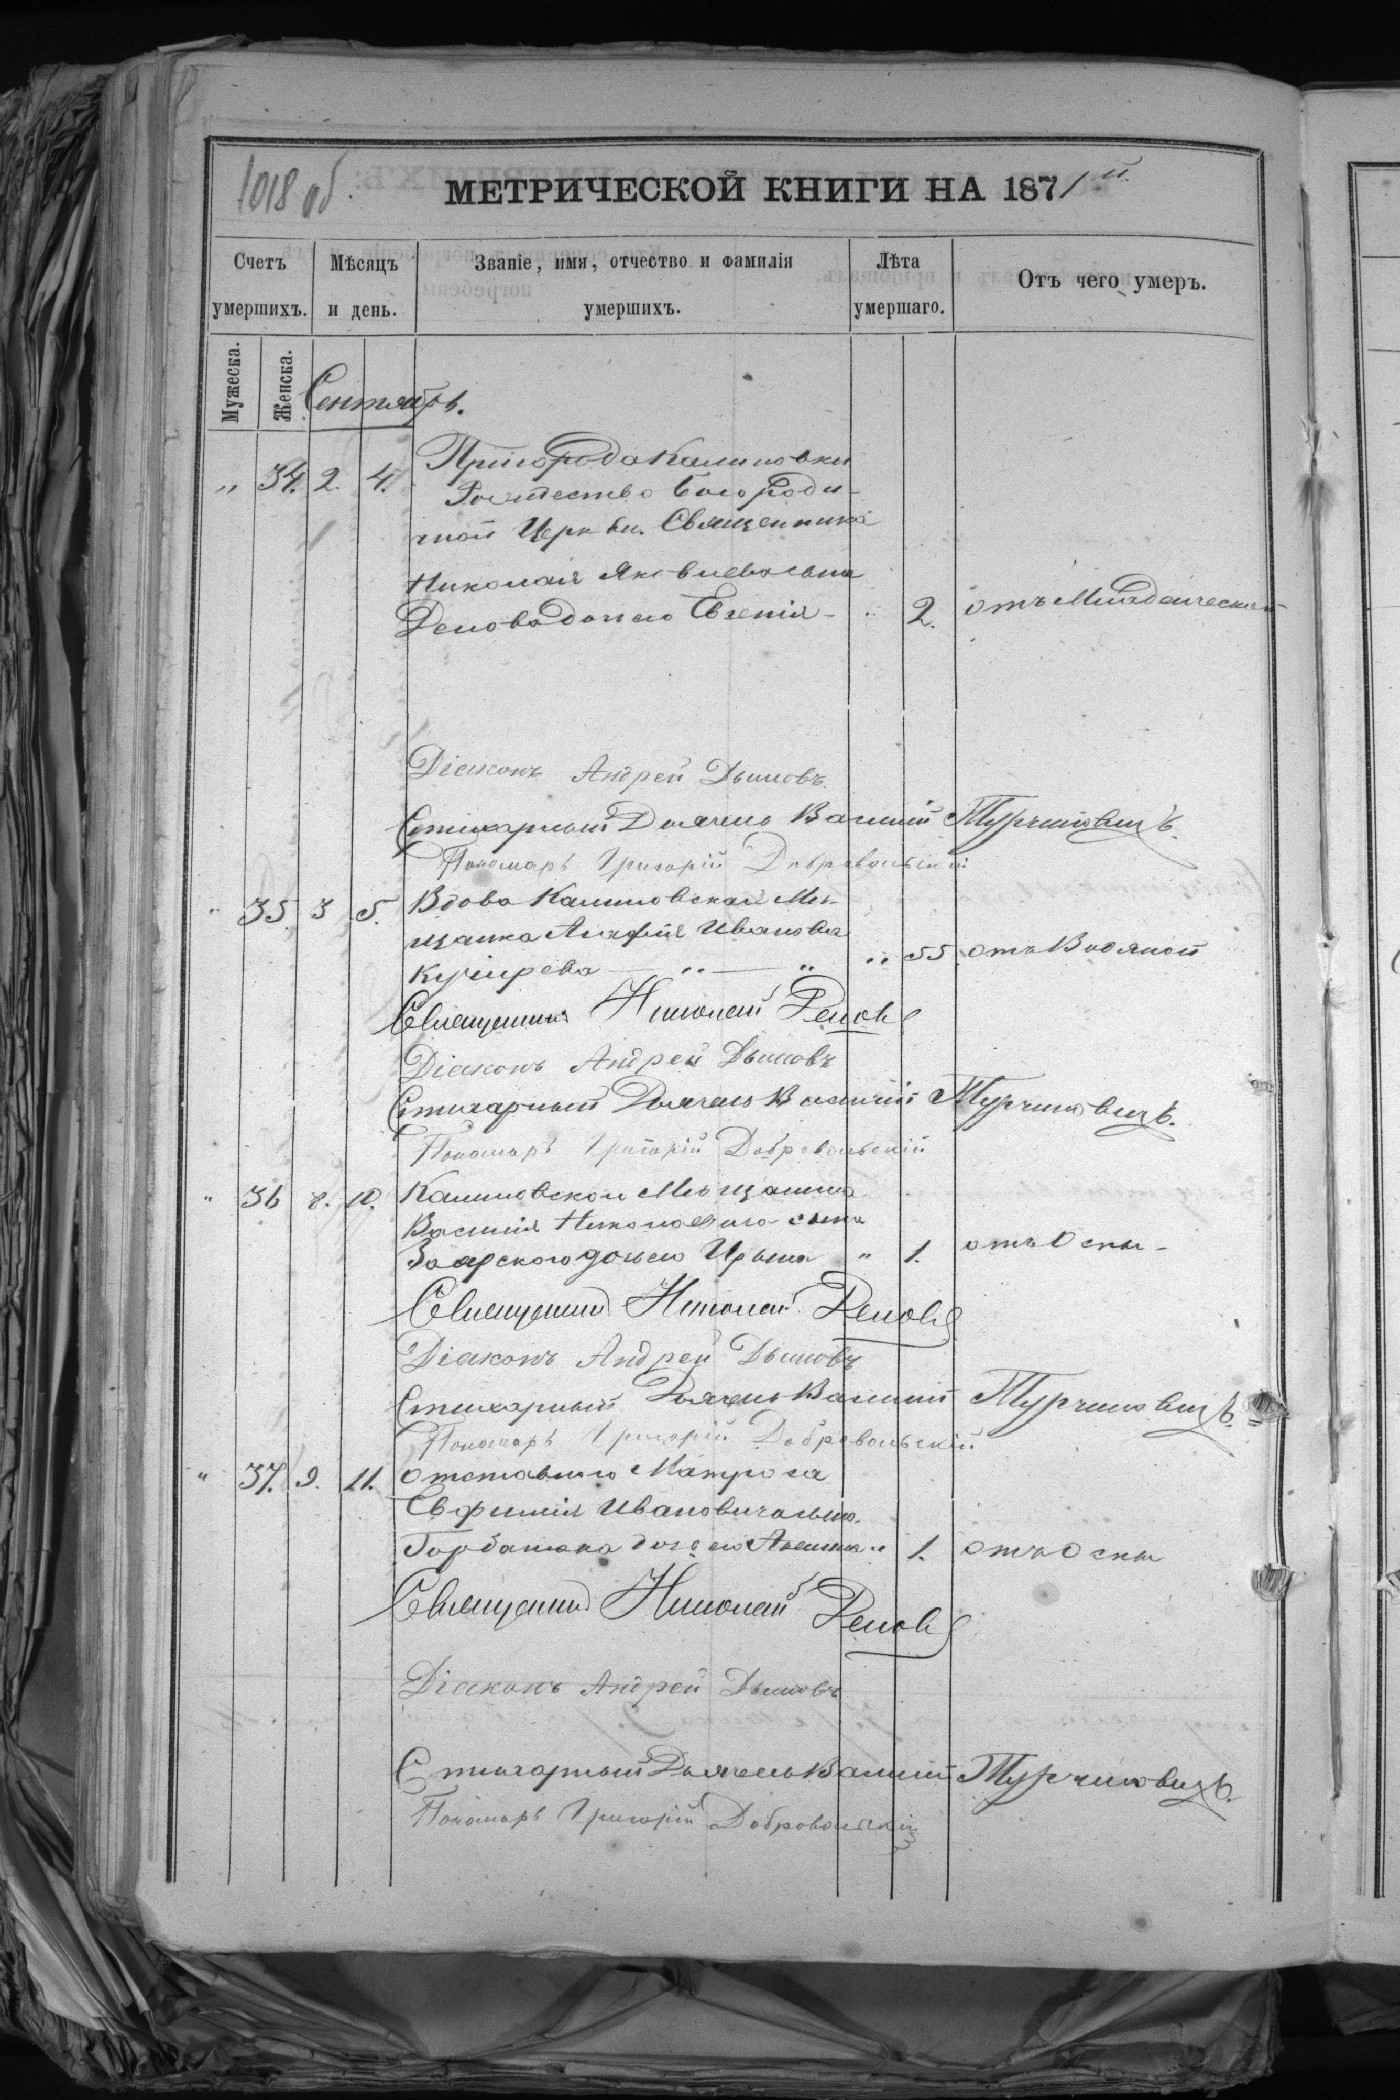 1018 об.
МЕТРИЧЕСКОЙ КНИГИ НА 1871й
Счетъ умершихъ.
Мѣсяцъ и день.
Званіе, имя, отчество и фамилія умершихъ.
Лѣта умершаго.
Отъ чего умеръ.
Мужеска.
Женска.
Сентябрь.
" 34. 2. 4. Пригорода Калиновки
Рождество Богороди-
чной Церкви. Священника
Николая Яковлева сына
дочь его Евгенія - " 2. отъ Младенческой
Діаконъ Андрей Дымовъ
Стихарный Дьячекъ Василій Турчиновичъ.
Пономарь Григорій Добровольскій
" 35. 3 5. Вдова Калиновская Мѣ-
щанка Агафія Иванова
" " " 55 отъ Водяной
Священникъ Николай
Діаконъ Андрей Дымовъ
Стихарный Дьячекъ Василій Турчиновичъ.
Пономарь Григорій Добровольскій
" 36 8. 10. Калиновского Мѣщанина
Василія Николаевого сына
Заярского дочь его " 1. отъ Оспы -
Священникъ Николай
Діаконъ Андрей Дымовъ
Стихарный Дьячекъ Василій Турчиновичъ.
Пономарь Григорій Добровольскій
" 37. 9. 11. Отставного Матроса
Евфимія Ивановича сына
Горбатюка дочь его " 1. отъ Оспы
Священникъ Николай
Діаконъ Андрей Дымовъ
Стихарный Дьячекъ Василій Турчиновичъ.
Пономарь Григорій Добровольскій